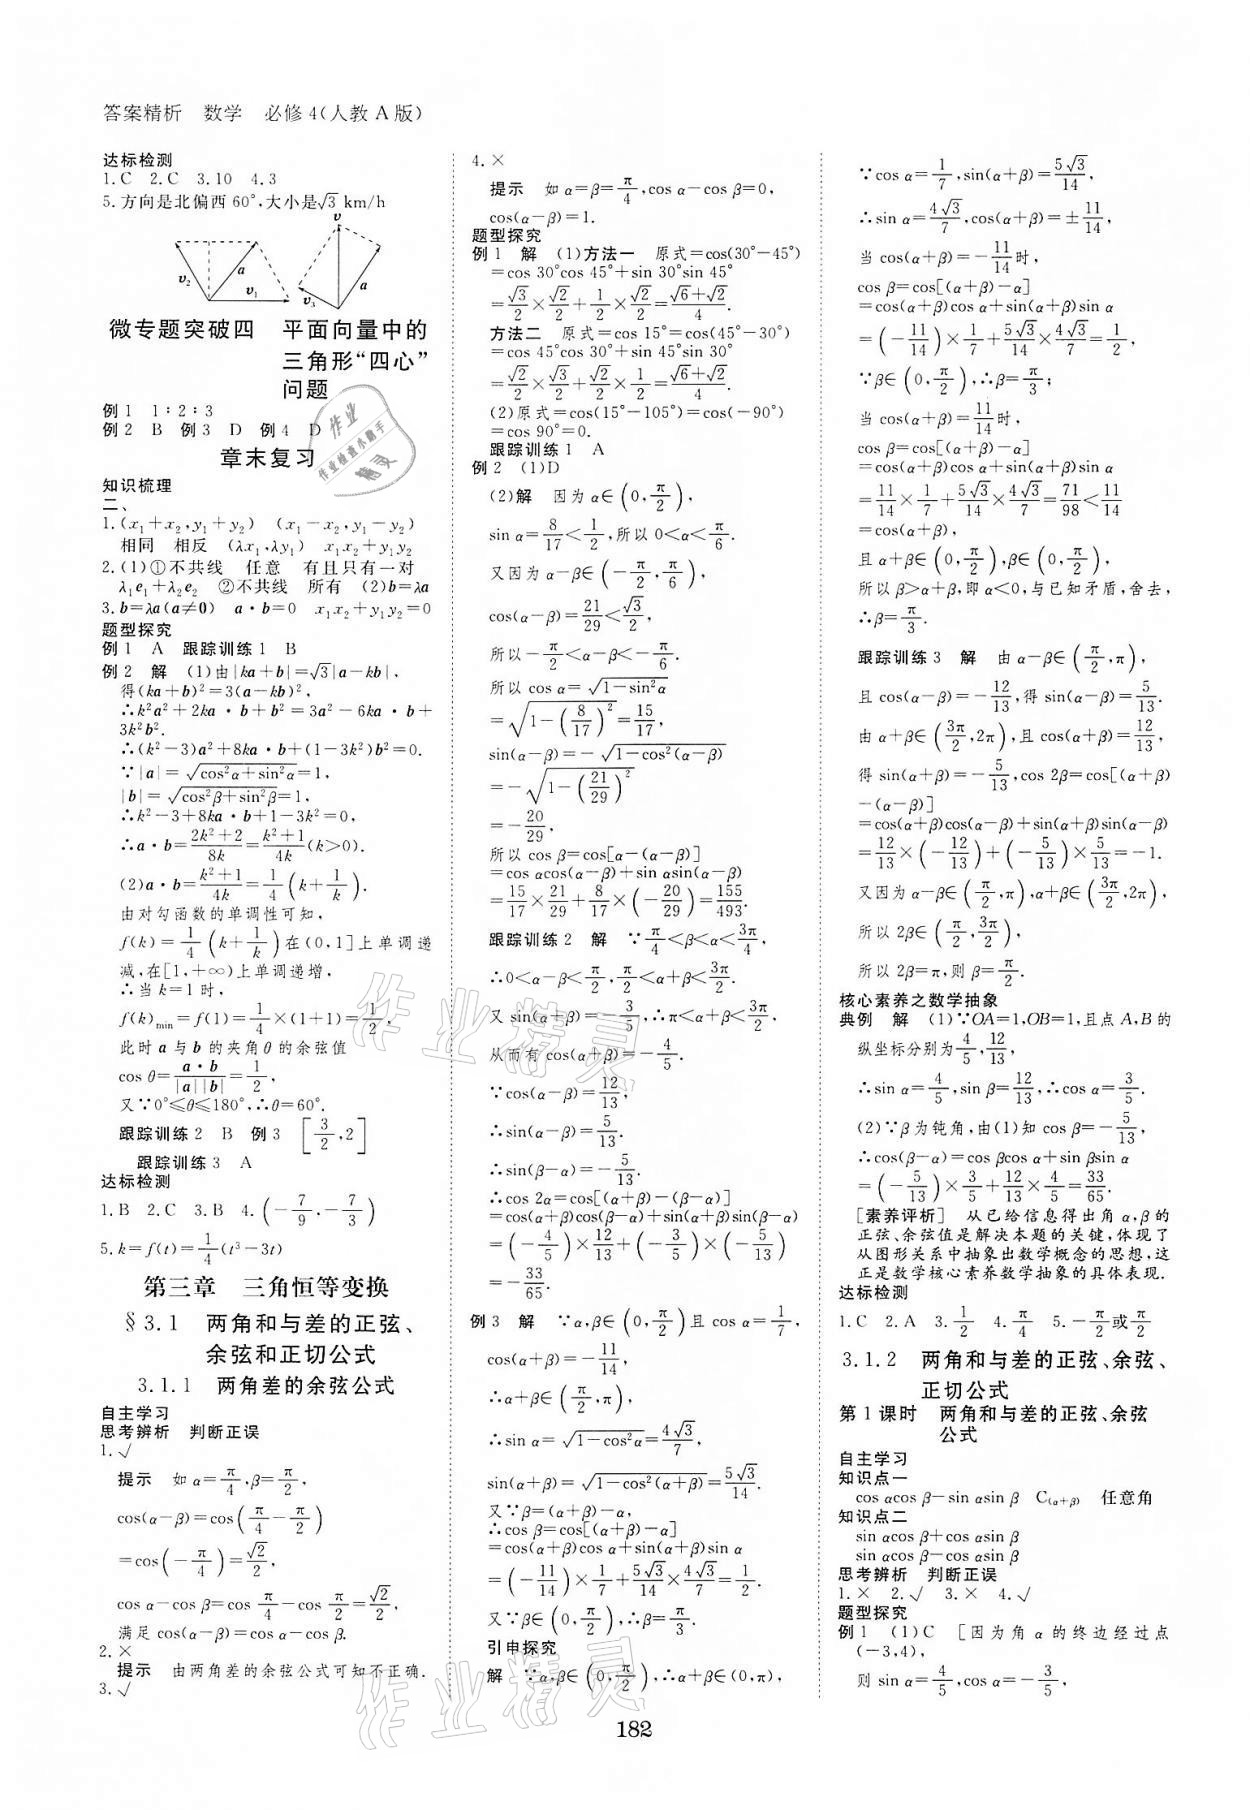 答案精析 数学 必修4(人教A版)
达标检测
1.C 2.C 3.10 4.3
5.方向是北偏西60°,大小是√3 km/h
v
v₂ a v₁ v₃ a
微专题突破四 平面向量中的
三角形“四心”
问题
例1 1∶2∶3
例2 B 例3 D 例4 D
章末复习
知识梳理
二、
1.(x₁+x₂,y₁+y₂) (x₁-x₂,y₁-y₂)
相同 相反 (λx₁,λy₁) x₁x₂+y₁y₂
2.(1)①不共线 任意 有且只有一对
λ₁e₁+λ₂e₂ ②不共线 所有 (2)b=λa
3.b=λa(a≠0) a·b=0 x₁x₂+y₁y₂=0
题型探究
例1 A 跟踪训练1 B
例2 解 (1)由|ka+b|=√3|a-kb|,
得(ka+b)²=3(a-kb)²,
∴k²a²+2ka·b+b²=3a²-6ka·b+
3k²b².
∴(k²-3)a²+8ka·b+(1-3k²)b²=0.
∵|a|=√(cos²α+sin²α)=1,
|b|=√(cos²β+sin²β)=1,
∴k²-3+8ka·b+1-3k²=0,
∴a·b=(2k²+2)/8k=(k²+1)/4k(k>0).
(2)a·b=(k²+1)/4k=1/4(k+1/k).
由对勾函数的单调性可知,
f(k)=1/4(k+1/k)在(0,1]上单调递
减,在[1,+∞)上单调递增,
∴当k=1时,
f(k)min=f(1)=1/4×(1+1)=1/2,
此时a与b的夹角θ的余弦值
cos θ=a·b/|a||b|=1/2,
又∵0°≤θ≤180°,∴θ=60°.
跟踪训练2 B 例3 [3/2,2]
跟踪训练3 A
达标检测
1.B 2.C 3.B 4.(-7/9,-7/3)
5.k=f(t)=1/4(t³-3t)
第三章 三角恒等变换
§3.1 两角和与差的正弦、
余弦和正切公式
3.1.1 两角差的余弦公式
自主学习
思考辨析 判断正误
1.√
提示 如α=π/4,β=π/2,
cos(α-β)=cos(π/4-π/2)
=cos(-π/4)=√2/2,
cos α-cos β=cos π/4-cos π/2=√2/2,
满足cos(α-β)=cos α-cos β.
2.×
提示 由两角差的余弦公式可知不正确.
3.√
4.×
提示 如α=β=π/4,cos α-cos β=0,
cos(α-β)=1.
题型探究
例1 解 (1)方法一 原式=cos(30°-45°)
=cos 30°cos 45°+sin 30°sin 45°
=√3/2×√2/2+1/2×√2/2=(√6+√2)/4.
方法二 原式=cos 15°=cos(45°-30°)
=cos 45°cos 30°+sin 45°sin 30°
=√2/2×√3/2+√2/2×1/2=(√6+√2)/4.
(2)原式=cos(15°-105°)=cos(-90°)
=cos 90°=0.
跟踪训练1 A
例2 (1)D
(2)解 因为α∈(0,π/2),
sin α=8/17<1/2,所以0<α<π/6.
又因为α-β∈(-π/2,π/6),
cos(α-β)=21/29<√3/2,
所以-π/2<α-β<-π/6.
所以cos α=√(1-sin²α)
=√(1-(8/17)²)=15/17,
sin(α-β)=-√(1-cos²(α-β))
=-√(1-(21/29)²)
=-20/29,
所以cos β=cos[α-(α-β)]
=cos αcos(α-β)+sin αsin(α-β)
=15/17×21/29+8/17×(-20/29)=155/493.
跟踪训练2 解 ∵π/4<β<α<3π/4,
∴0<α-β<π/2,π/2<α+β<3π/2.
又sin(α+β)=-3/5,∴π<α+β<3π/2,
从而有cos(α+β)=-4/5.
∵cos(α-β)=12/13,
∴sin(α-β)=5/13.
∴sin(β-α)=-5/13.
∴cos 2α=cos[(α+β)-(β-α)]
=cos(α+β)cos(β-α)+sin(α+β)sin(β-α)
=(-4/5)×12/13+(-3/5)×(-5/13)
=-33/65.
例3 解 ∵α,β∈(0,π/2)且cos α=1/7,
cos(α+β)=-11/14,
∴α+β∈(π/2,π),
∴sin α=√(1-cos²α)=4√3/7,
sin(α+β)=√(1-cos²(α+β))=5√3/14.
又∵β=(α+β)-α,
∴cos β=cos[(α+β)-α]
=cos(α+β)cos α+sin(α+β)sin α
=(-11/14)×1/7+5√3/14×4√3/7=1/2.
又∵β∈(0,π/2),∴β=π/3.
引申探究
解 ∵α,β∈(0,π/2),∴α+β∈(0,π),
∵cos α=1/7,sin(α+β)=5√3/14,
∴sin α=4√3/7,cos(α+β)=±11/14,
当cos(α+β)=-11/14时,
cos β=cos[(α+β)-α]
=cos(α+β)cos α+sin(α+β)sin α
=(-11/14)×1/7+5√3/14×4√3/7=1/2,
∵β∈(0,π/2),∴β=π/3;
当cos(α+β)=11/14时,
cos β=cos[(α+β)-α]
=cos(α+β)cos α+sin(α+β)sin α
=11/14×1/7+5√3/14×4√3/7=71/98<11/14
=cos(α+β),
且α+β∈(0,π/2),β∈(0,π/2),
所以β>α+β,即α<0,与已知矛盾,舍去,
∴β=π/3.
跟踪训练3 解 由α-β∈(π/2,π),
且cos(α-β)=-12/13,得sin(α-β)=5/13.
由α+β∈(3π/2,2π),且cos(α+β)=12/13,
得sin(α+β)=-5/13,cos 2β=cos[(α+β)
-(α-β)]
=cos(α+β)cos(α-β)+sin(α+β)sin(α-β)
=12/13×(-12/13)+(-5/13)×5/13=-1.
又因为α-β∈(π/2,π),α+β∈(3π/2,2π),
所以2β∈(π/2,3π/2),
所以2β=π,则β=π/2.
核心素养之数学抽象
典例 解 (1)∵OA=1,OB=1,且点A,B的
纵坐标分别为4/5,12/13,
∴sin α=4/5,sin β=12/13,∴cos α=3/5.
(2)∵β为钝角,由(1)知cos β=-5/13,
∴cos(β-α)=cos βcos α+sin βsin α
=(-5/13)×3/5+12/13×4/5=33/65.
[素养评析] 从已给信息得出角α,β的
正弦、余弦值是解决本题的关键,体现了
从图形关系中抽象出数学概念的思想,这
正是数学核心素养数学抽象的具体表现.
达标检测
1.C 2.A 3.1/2 4.π/4 5.-π/2或π/2
3.1.2 两角和与差的正弦、余弦、
正切公式
第1课时 两角和与差的正弦、余弦
公式
自主学习
知识点一
cos αcos β-sin αsin β C(α+β) 任意角
知识点二
sin αcos β+cos αsin β
sin αcos β-cos αsin β
思考辨析 判断正误
1.× 2.√ 3.× 4.√
题型探究
例1 (1)C [因为角α的终边经过点
(-3,4),
则sin α=4/5,cos α=-3/5,
182
作业
作业检查小助手
精灵
作业精灵
作业精灵